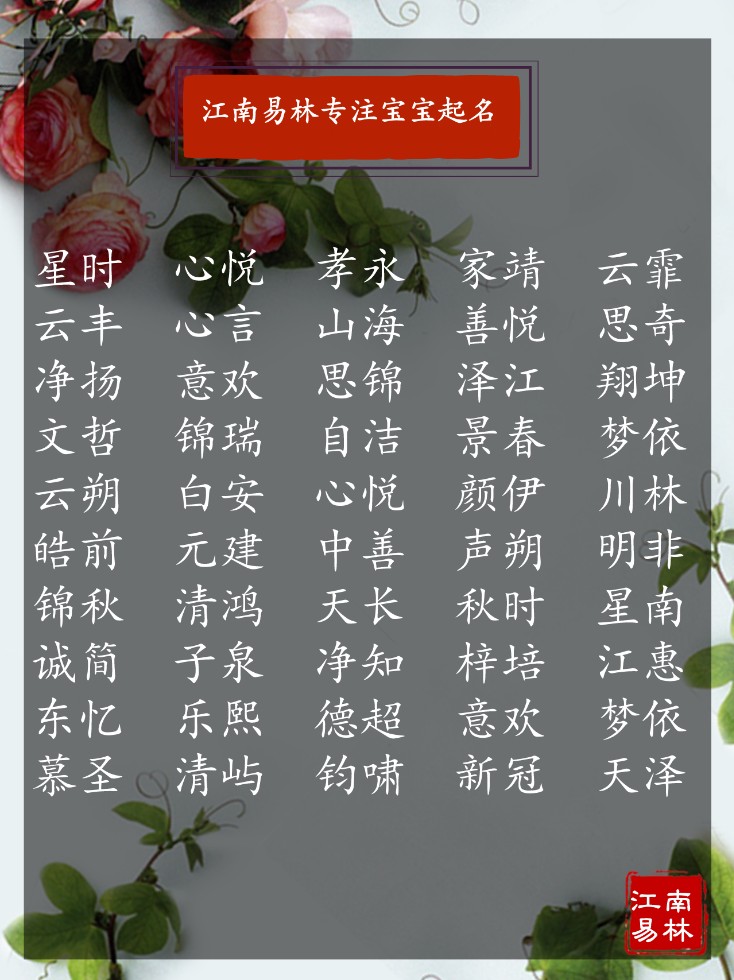 江南易林专注宝宝起名
星时 心悦 孝永 家靖 云霏
云丰 心言 山海 善悦 思奇
净扬 意欢 思锦 泽江 翔坤
文哲 锦瑞 自洁 景春 梦依
云朔 白安 心悦 颜伊 川林
皓前 元建 中善 声朔 明非
锦秋 清鸿 天长 秋时 星南
诚简 子泉 净知 梓培 江惠
东忆 乐熙 德超 意欢 梦依
慕圣 清屿 钧啸 新冠 天泽
江南
易林